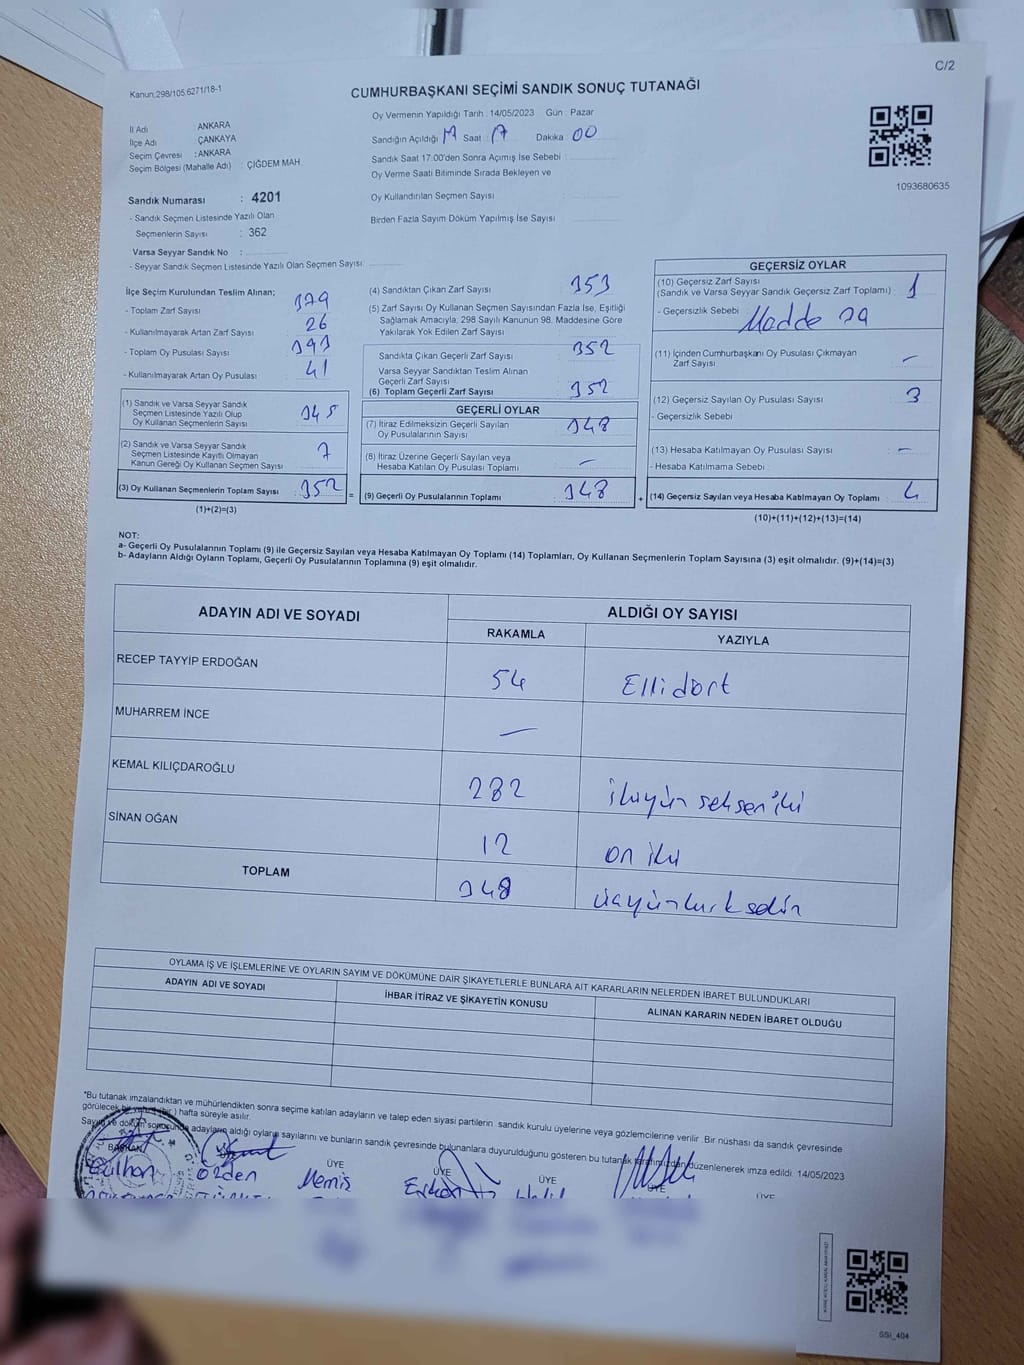 C/2
Kanun;298/105.6271/18-1
CUMHURBAŞKANI SEÇİMİ SANDIK SONUÇ TUTANAĞI
İl Adı ANKARA
İlçe Adı ÇANKAYA
Seçim Çevresi : ANKARA
Seçim Bölgesi (Mahalle Adı) : ÇİĞDEM MAH.
Oy Vermenin Yapıldığı Tarih : 14/05/2023 Gün : Pazar
Sandığın Açıldığı Saat : 17 Dakika 00
Sandık Saat 17:00'den Sonra Açımış İse Sebebi :
Oy Verme Saati Bitiminde Sırada Bekleyen ve
Oy Kullandırılan Seçmen Sayısı :
Birden Fazla Sayım Döküm Yapılmış İse Sayısı
1093680635
Sandık Numarası : 4201
- Sandık Seçmen Listesinde Yazılı Olan
Seçmenlerin Sayısı : 362
Varsa Seyyar Sandık No :
- Seyyar Sandık Seçmen Listesinde Yazılı Olan Seçmen Sayısı:
İlçe Seçim Kurulundan Teslim Alınan;
- Toplam Zarf Sayısı 379
- Kullanılmayarak Artan Zarf Sayısı 26
- Toplam Oy Pusulası Sayısı 393
- Kullanılmayarak Artan Oy Pusulası 41
(1) Sandık ve Varsa Seyyar Sandık
Seçmen Listesinde Yazılı Olup
Oy Kullanan Seçmenlerin Sayısı 345
(2) Sandık ve Varsa Seyyar Sandık
Seçmen Listesinde Kayıtlı Olmayan
Kanun Gereği Oy Kullanan Seçmen Sayısı 7
(3) Oy Kullanan Seçmenlerin Toplam Sayısı 352 =
(1)+(2)=(3)
(4) Sandıktan Çıkan Zarf Sayısı 353
(5) Zarf Sayısı Oy Kullanan Seçmen Sayısından Fazla İse, Eşitliği
Sağlamak Amacıyla; 298 Sayılı Kanunun 98. Maddesine Göre
Yakılarak Yok Edilen Zarf Sayısı
Sandıkta Çıkan Geçerli Zarf Sayısı 352
Varsa Seyyar Sandıktan Teslim Alınan
Geçerli Zarf Sayısı
(6) Toplam Geçerli Zarf Sayısı 352
GEÇERLİ OYLAR
(7) İtiraz Edilmeksizin Geçerli Sayılan
Oy Pusulalarının Sayısı 348
(8) İtiraz Üzerine Geçerli Sayılan veya
Hesaba Katılan Oy Pusulası Toplamı —
(9) Geçerli Oy Pusulalarının Toplamı 348 +
GEÇERSİZ OYLAR
(10) Geçersiz Zarf Sayısı
(Sandık ve Varsa Seyyar Sandık Geçersiz Zarf Toplamı) : 1
- Geçersizlik Sebebi : Madde
(11) İçinden Cumhurbaşkanı Oy Pusulası Çıkmayan
Zarf Sayısı —
(12) Geçersiz Sayılan Oy Pusulası Sayısı 3
- Geçersizlik Sebebi
(13) Hesaba Katılmayan Oy Pusulası Sayısı —
- Hesaba Katılmama Sebebi
(14) Geçersiz Sayılan veya Hesaba Katılmayan Oy Toplamı 4
(10)+(11)+(12)+(13)=(14)
NOT:
a- Geçerli Oy Pusulalarının Toplamı (9) ile Geçersiz Sayılan veya Hesaba Katılmayan Oy Toplamı (14) Toplamları, Oy Kullanan Seçmenlerin Toplam Sayısına (3) eşit olmalıdır. (9)+(14)=(3)
b- Adayların Aldığı Oyların Toplamı, Geçerli Oy Pusulalarının Toplamına (9) eşit olmalıdır.
ADAYIN ADI VE SOYADI ALDIĞI OY SAYISI
RAKAMLA YAZIYLA
RECEP TAYYİP ERDOĞAN 54 Ellidört
MUHARREM İNCE —
KEMAL KILIÇDAROĞLU 282 ikiyüz seksen iki
SİNAN OĞAN 12 on iki
TOPLAM 348 üçyüzkırk sekiz
OYLAMA İŞ VE İŞLEMLERİNE VE OYLARIN SAYIM VE DÖKÜMÜNE DAİR ŞİKAYETLERLE BUNLARA AİT KARARLARIN NELERDEN İBARET BULUNDUKLARI
ADAYIN ADI VE SOYADI İHBAR İTİRAZ VE ŞİKAYETİN KONUSU ALINAN KARARIN NEDEN İBARET OLDUĞU
*Bu tutanak imzalandıktan ve mühürlendikten sonra seçime katılan adayların ve talep eden siyasi partilerin sandık kurulu üyelerine veya gözlemcilerine verilir. Bir nüshası da sandık çevresinde
görülecek bir yere 1 (bir ) hafta süreyle asılır.
Sayım ve döküm sonucunda adayların aldığı oyların sayılarını ve bunların sandık çevresinde bulunanlara duyurulduğunu gösteren bu tutanak tarafımızdan düzenlenerek imza edildi. 14/05/2023
BAŞKAN ÜYE ÜYE ÜYE ÜYE ÜYE
Gülhan Özden Memiş Erkan Halil
SSİ_404